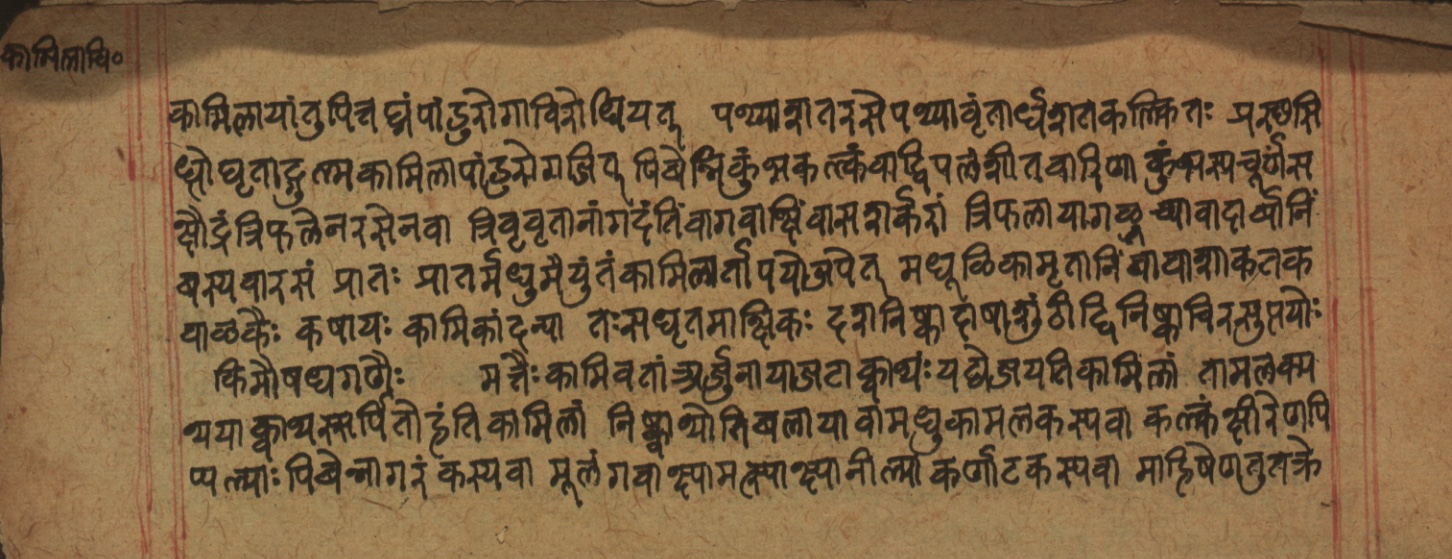 कामिलाचि०
कामिलायांतुपित्तघ्नंपांडुरोगाविरोधियत् पथ्याशतरसेपथ्यावृंतार्धशतकल्कितः प्रस्थसि
ध्धोघृताद्गुल्मकामिलापांडुरोगजित् पिबेन्निकुंभकल्कंवाद्विपलंशीतवारिणा कुंभस्यचूर्णंस
क्षौद्रंत्रिफलेनरसेनवा त्रिवृवृतानांगदंतिंवागवाक्षिंवासशर्करां त्रिफलायागळूच्यावादार्व्यानिं
बस्यवारसं प्रातः प्रातर्मधुमैयुंतंकामिलार्तापयोजपेत् मधूळिकामृतानिंबायाशाकतक
याळकैः कषायः कामिकांदत्या तःसघृतमाक्षिकः दशनिष्काद्राषाशुंठीद्विनिष्काविरसुप्तयोः
किमौषधगणैः मन्नैःकामिवतां अर्जुनायाजटाक्वाथंःयद्येजयतिकामिलां तामलक्य
थयाक्वाथस्सर्पितोहंतिकामिलां निष्क्वाथ्योतिबलायावामधुकामलकस्यवा कल्कंक्षीरेणपि
प्पल्याःपिबेन्नागरंकस्यवा मूलंगवाक्ष्यामत्स्याक्ष्यानील्याकर्णाटकस्यवा माहिषेणतुतक्रे